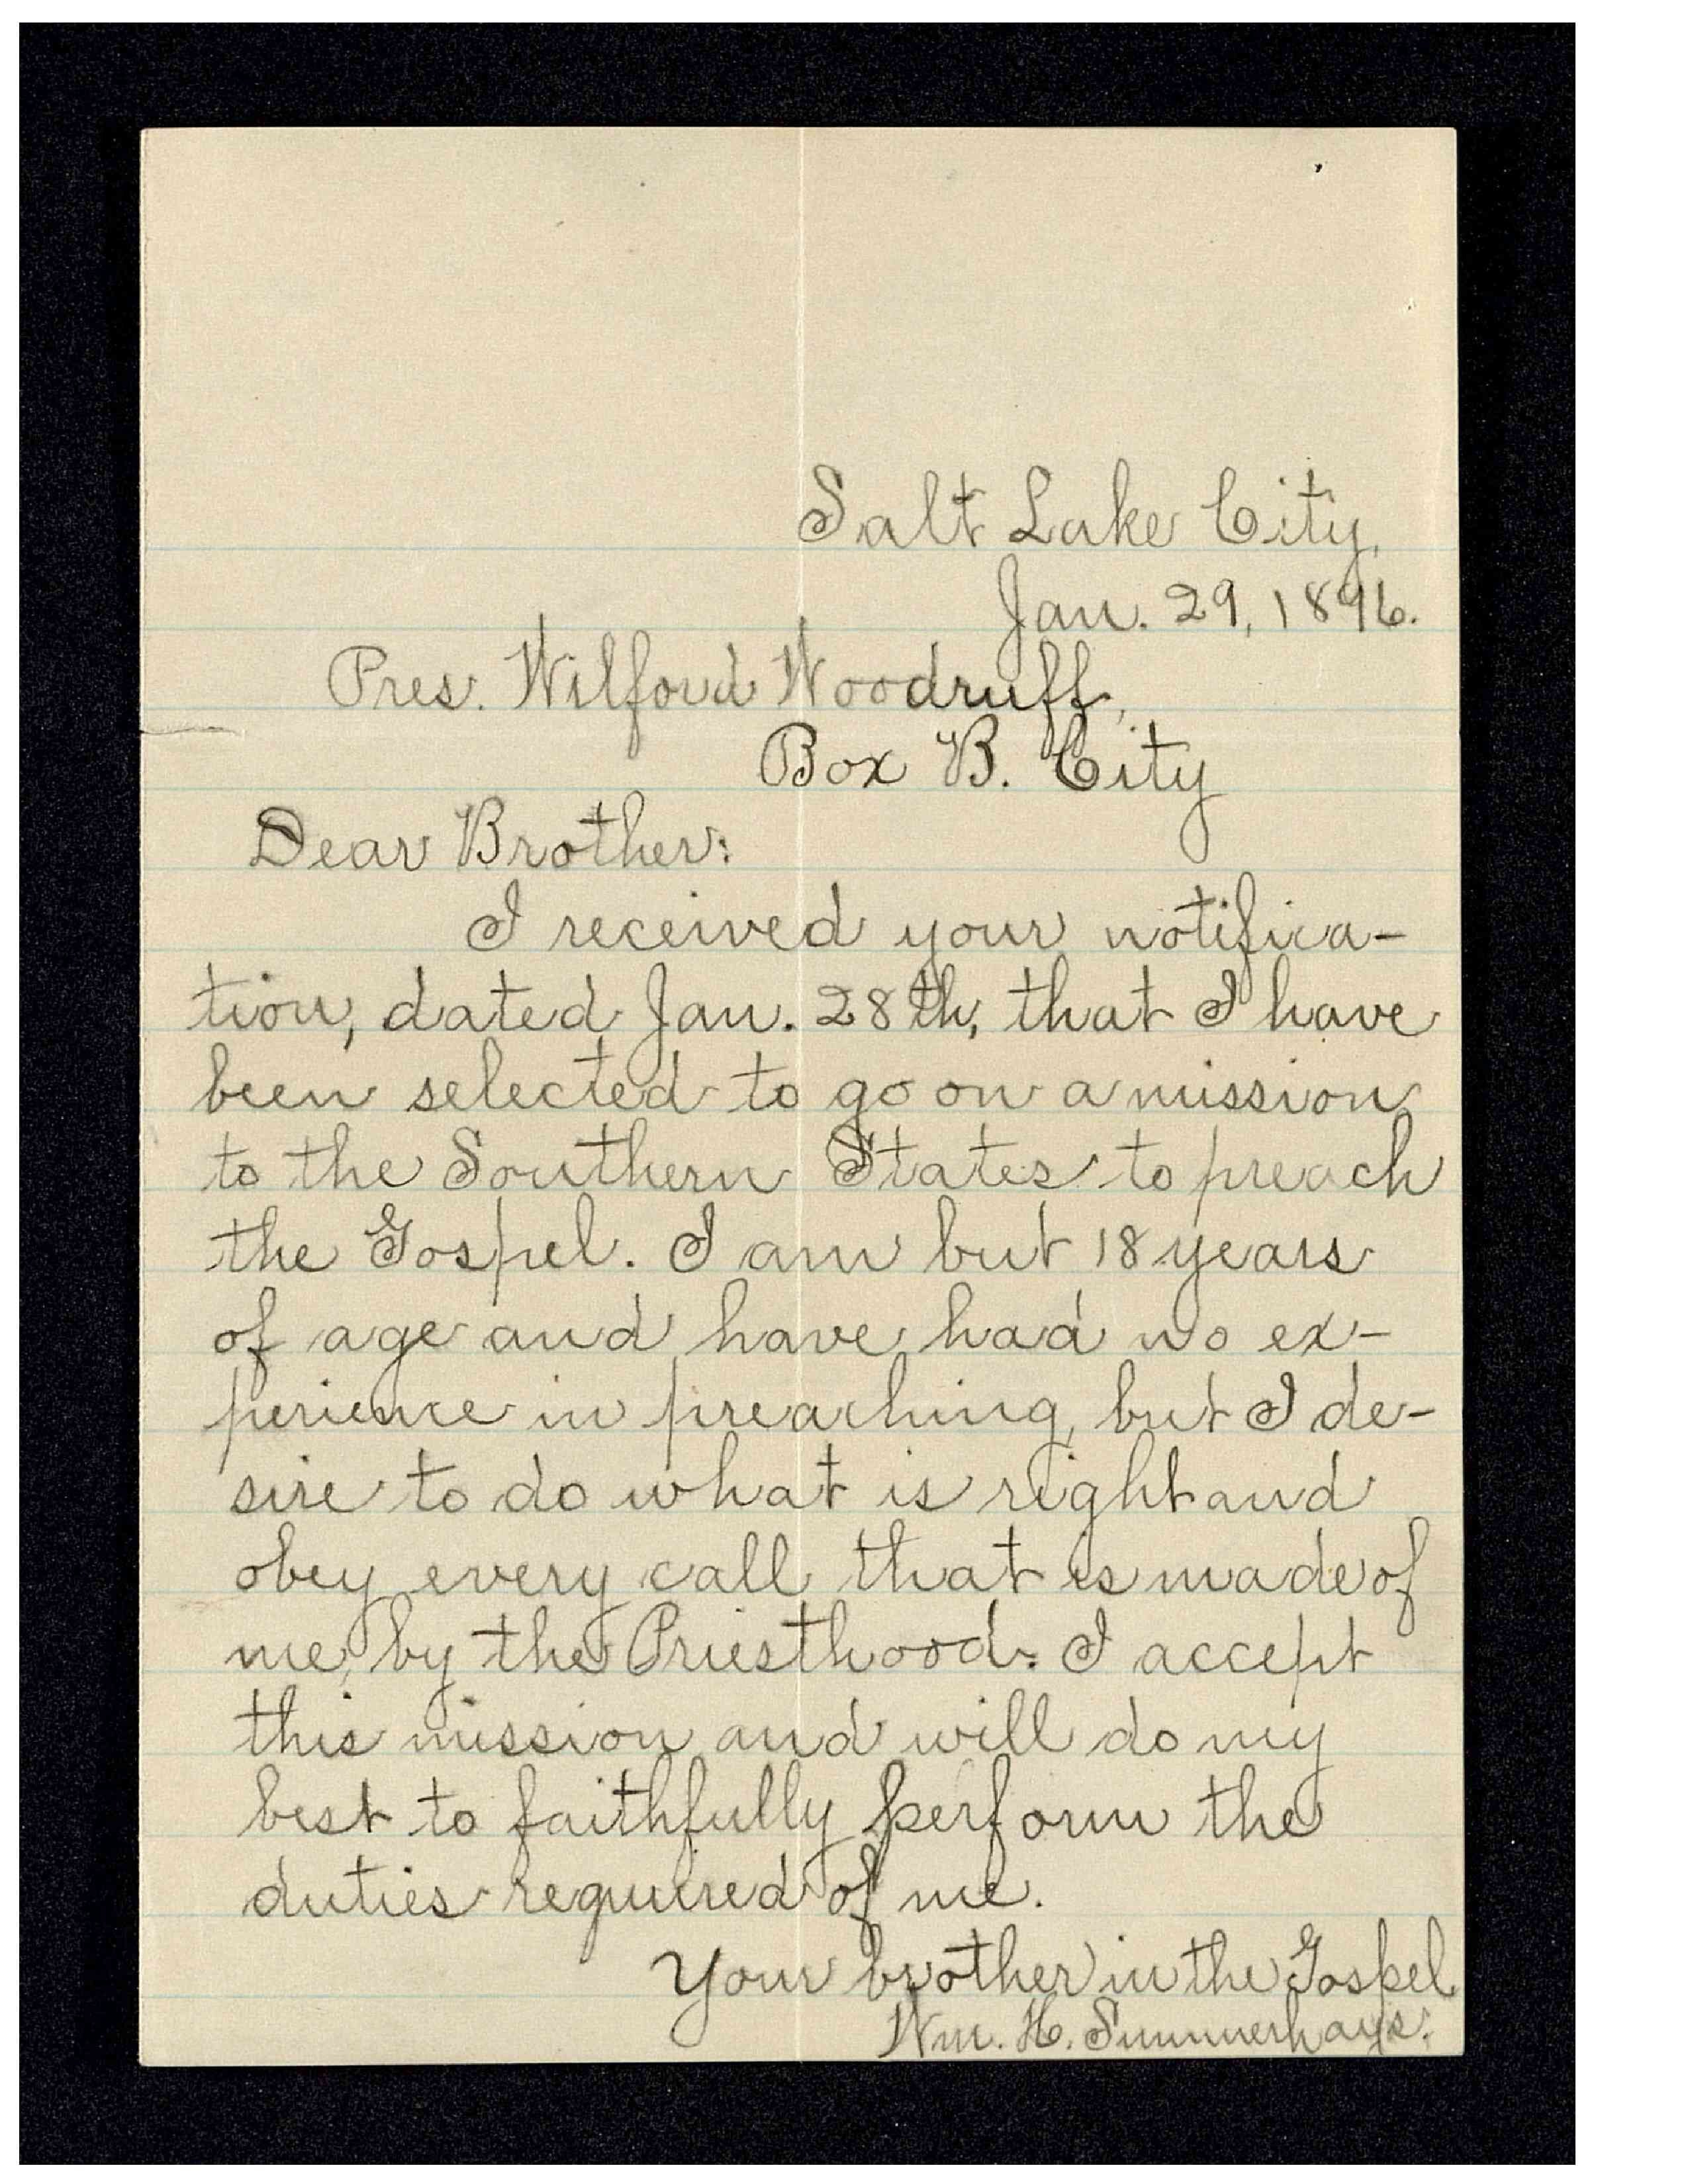 Salt Lake City,
Jan. 29, 1896.
Pres. Wilford Woodruff,
Box B. City
Dear Brother:
I received your notifica-
tion, dated Jan. 28th, that I have
been selected to go on a mission
to the Southern States to preach
the Gospel. I am but 18 years
of age and have had no ex-
perience in preaching, but I de-
sire to do what is right and
obey every call that is made of
me, by the Priesthood. I accept
this mission and will do my
best to faithfully perform the
duties required of me.
Your brother in the Gospel
Wm. H. Summerhays.